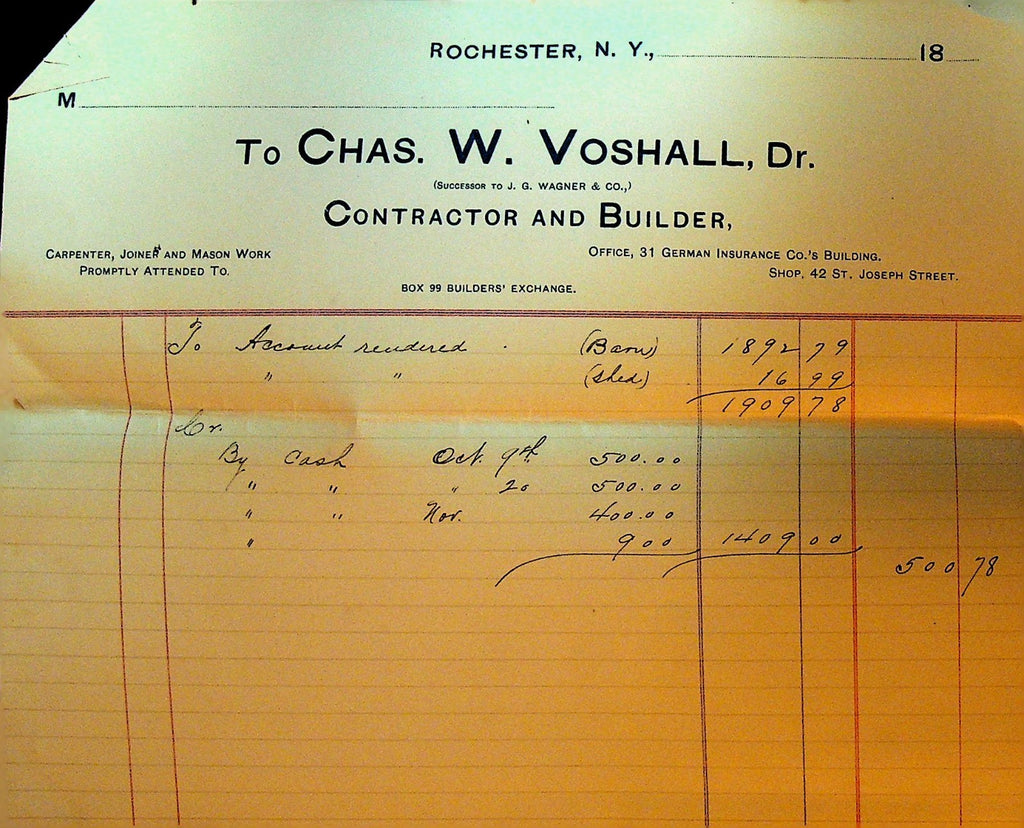 ROCHESTER, N. Y., 18
M
TO CHAS. W. VOSHALL, Dr.
(SUCCESSOR TO J. G. WAGNER & CO.,)
CONTRACTOR AND BUILDER,
CARPENTER, JOINER AND MASON WORK
PROMPTLY ATTENDED TO.
OFFICE, 31 GERMAN INSURANCE CO.'S BUILDING.
SHOP, 42 ST. JOSEPH STREET.
BOX 99 BUILDERS' EXCHANGE.
To Account rendered . (Barn) 1892 79
" " (Shed) 16 99
1909 78
Cr.
By Cash Oct. 9th 500.00
" " " 20 500.00
" " Nov. 400.00
" 9 00 1409 00
500 78